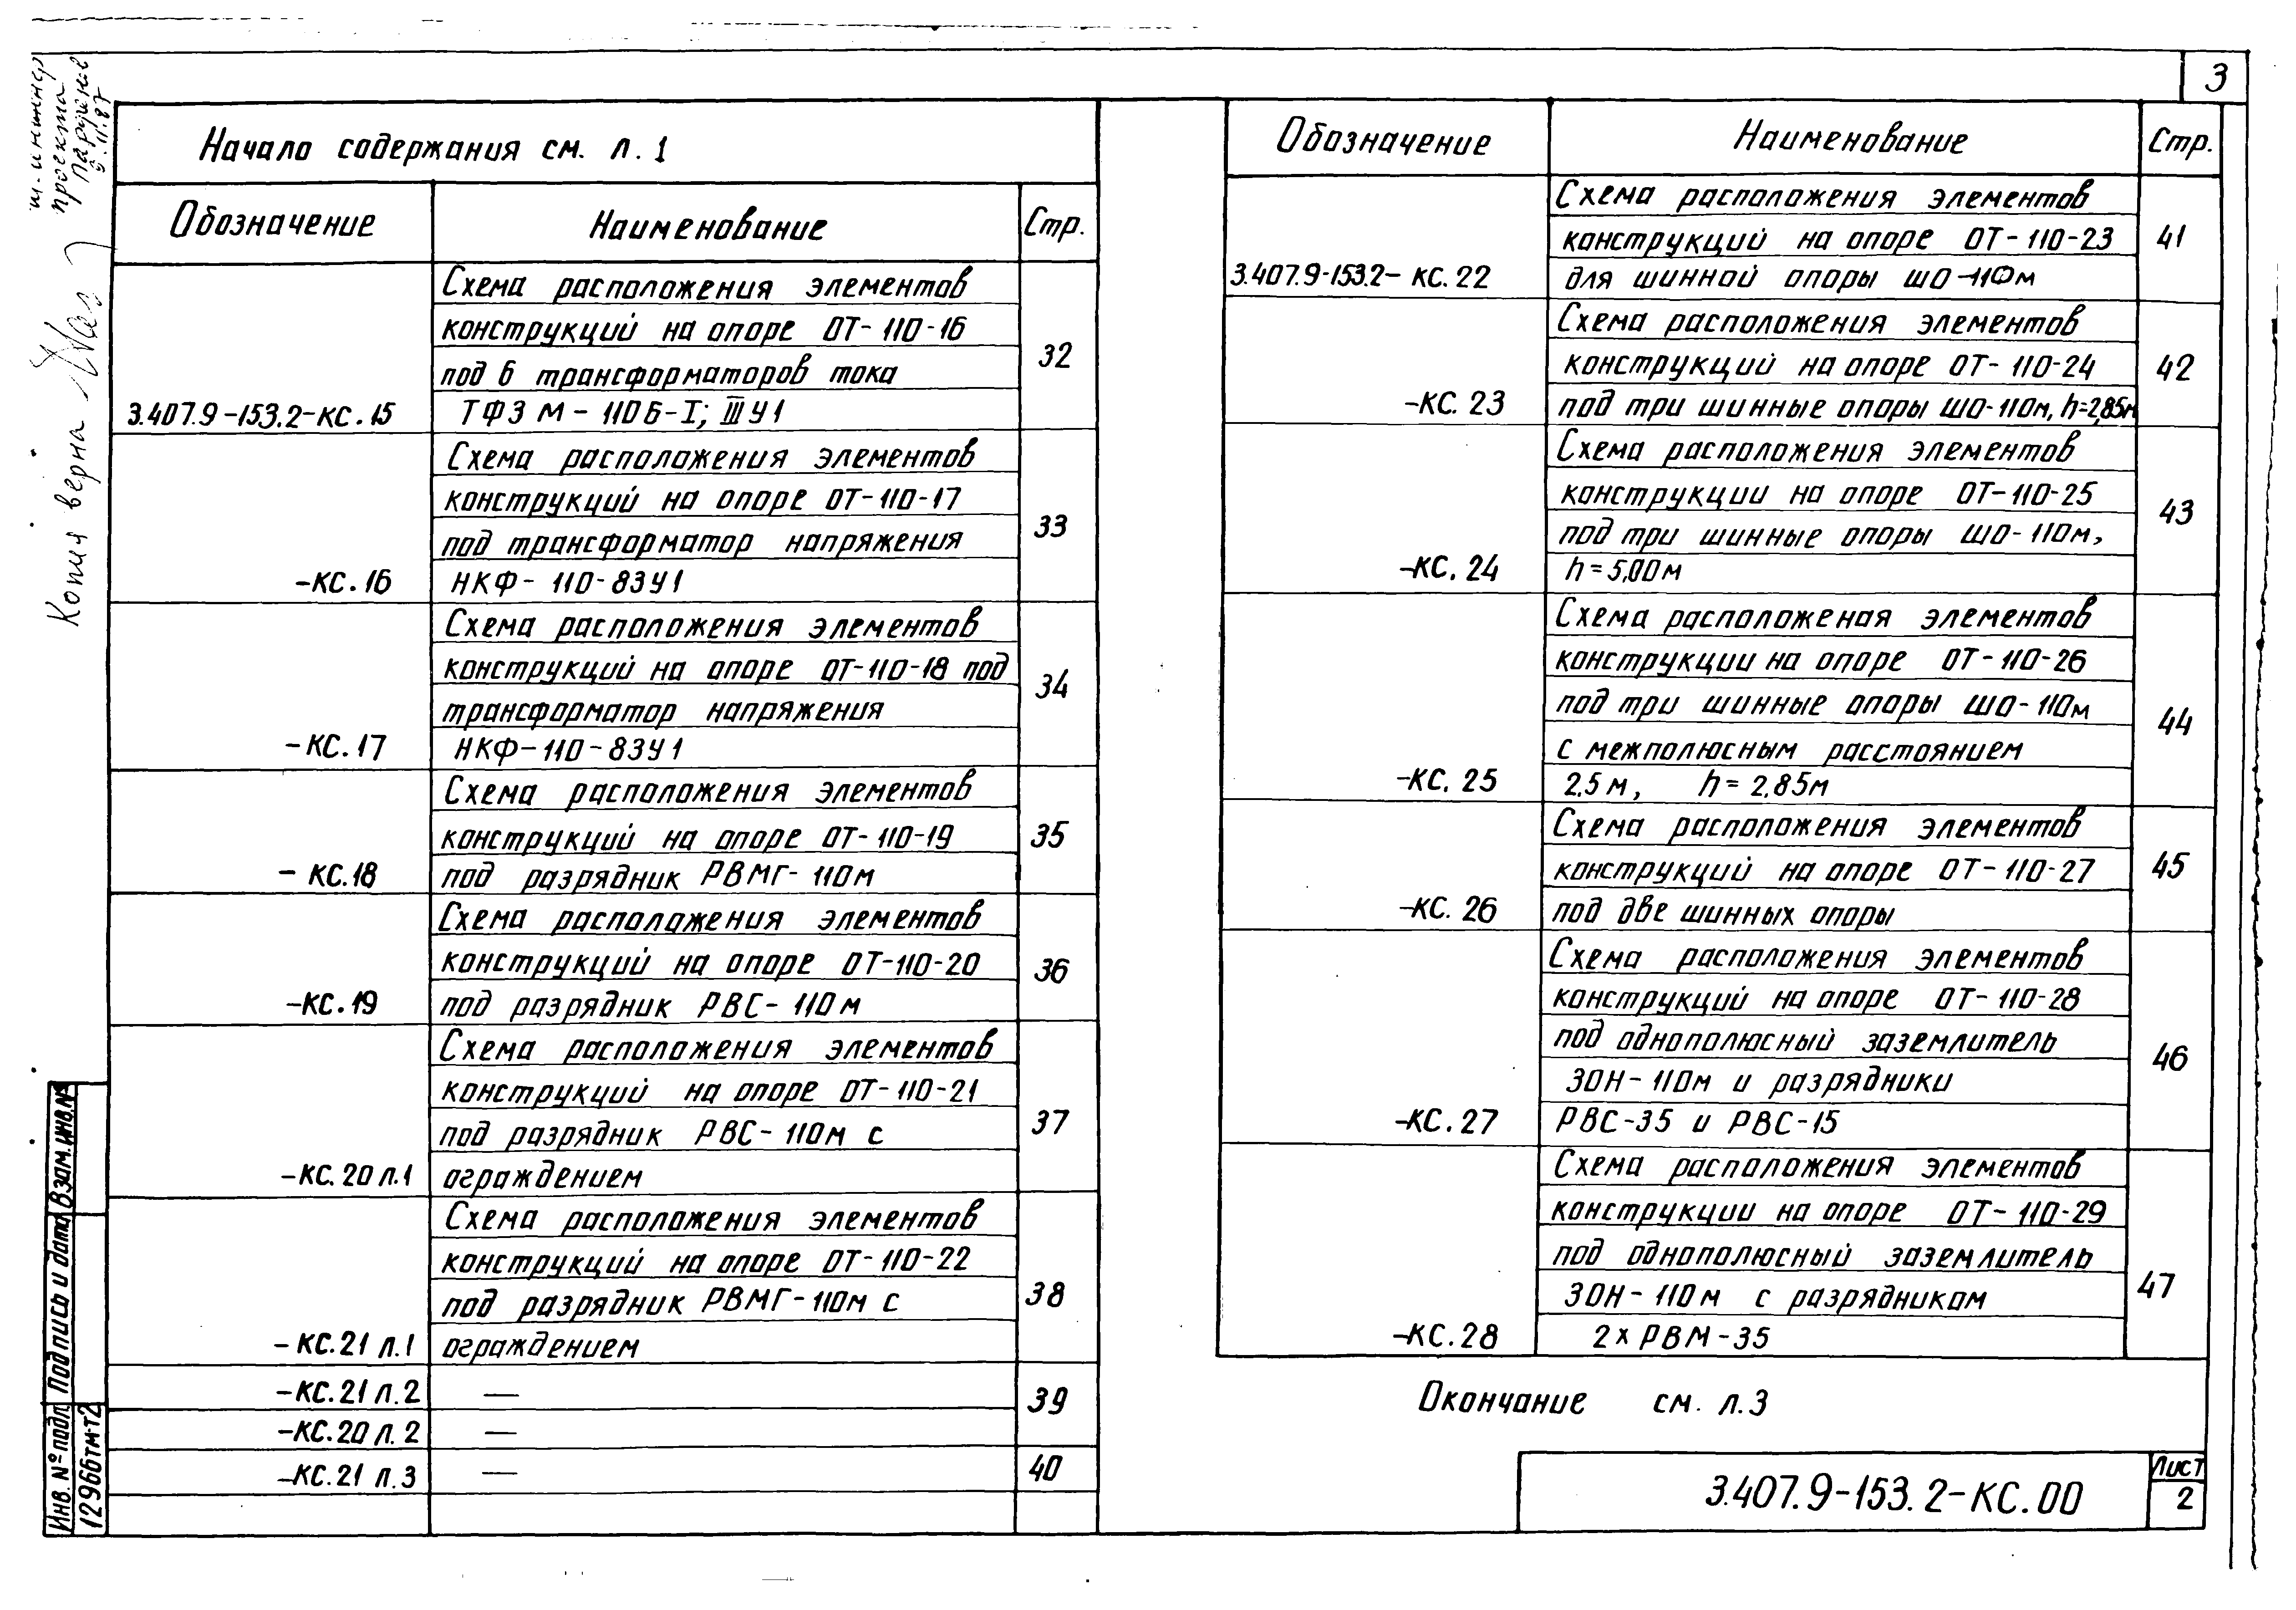 3
Начало содержания см. л. 1
Обозначение Наименование Стр.
Схема расположения элементов
конструкций на опоре ОТ-110-16
под 6 трансформаторов тока
3.407.9-153.2-КС.15 ТФЗМ-110Б-I; III У1 32
Схема расположения элементов
конструкций на опоре ОТ-110-17
под трансформатор напряжения
-КС.16 НКФ-110-83У1 33
Схема расположения элементов
конструкций на опоре ОТ-110-18 под
трансформатор напряжения
-КС.17 НКФ-110-83У1 34
Схема расположения элементов
конструкций на опоре ОТ-110-19
-КС.18 под разрядник РВМГ-110м 35
Схема расположения элементов
конструкций на опоре ОТ-110-20
-КС.19 под разрядник РВС-110м 36
Схема расположения элементов
конструкций на опоре ОТ-110-21
под разрядник РВС-110м с
-КС.20 л.1 ограждением 37
Схема расположения элементов
конструкций на опоре ОТ-110-22
под разрядник РВМГ-110м с
-КС.21 л.1 ограждением 38
-КС.21 л.2 — 39
-КС.20 л.2 —
-КС.21 л.3 — 40
Обозначение Наименование Стр.
Схема расположения элементов
конструкций на опоре ОТ-110-23
3.407.9-153.2-КС.22 для шинной опоры ШО-110м 41
Схема расположения элементов
конструкций на опоре ОТ-110-24
-КС.23 под три шинные опоры ШО-110м, h=2,85м 42
Схема расположения элементов
конструкции на опоре ОТ-110-25
под три шинные опоры ШО-110м,
-КС.24 h=5,00м 43
Схема расположеная элементов
конструкции на опоре ОТ-110-26
под три шинные опоры ШО-110м
с межполюсным расстоянием
-КС.25 2.5м, h=2.85м 44
Схема расположения элементов
конструкций на опоре ОТ-110-27
-КС.26 под две шинных опоры 45
Схема расположения элементов
конструкций на опоре ОТ-110-28
под однополюсный заземлитель
ЗОН-110м и разрядники
-КС.27 РВС-35 и РВС-15 46
Схема расположения элементов
конструкции на опоре ОТ-110-29
под однополюсный заземлитель
ЗОН-110м с разрядником
-КС.28 2хРВМ-35 47
Окончание см. л.3
3.407.9-153.2-КС.00
Лист
2
Копия верна
проекта
Инв. № подл. Подпись и дата Взам. инв. №
12966тм-т2